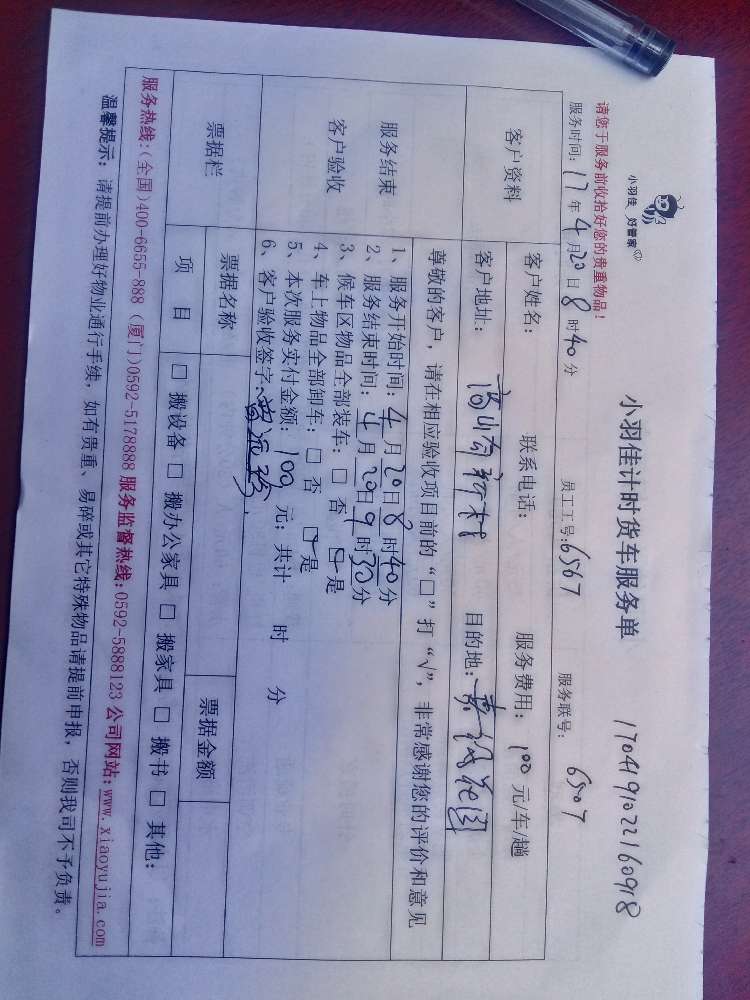 小羽佳 好管家
小羽佳计时货车服务单 1704191022160918
请您于服务前收拾好您的贵重物品！
服务时间：17年4月20日8时40分 员工工号：6567 服务联号： 6507
客户资料
客户姓名： 联系电话： 服务费用：100元/车/趟
客户地址： 新村 目的地： 花园
服务结束
客户验收
尊敬的客户，请在相应验收项目前的“□”打“√”，非常感谢您的评价和意见
1、服务开始时间：4月20日8时40分
2、服务结束时间：4月20日9时30分
3、候车区物品全部装车：□ 否 ☑是
4、车上物品全部卸车：□ 否 ☑是
5、本次服务实付金额：100元；共计 时 分
6、客户验收签字：
票据栏
票据名称 票据金额
项 目 □ 搬设备 □ 搬办公家具 □ 搬家具 □ 搬书 □ 其他：
服务热线：(全国)400-6655-888 (厦门)0592-5178888 服务监督热线：0592-5888123 公司网站：www.xiaoyujia.com
温馨提示：请提前办理好物业通行手续，如有贵重、易碎或其它特殊物品请提前申报，否则我司不予负责。